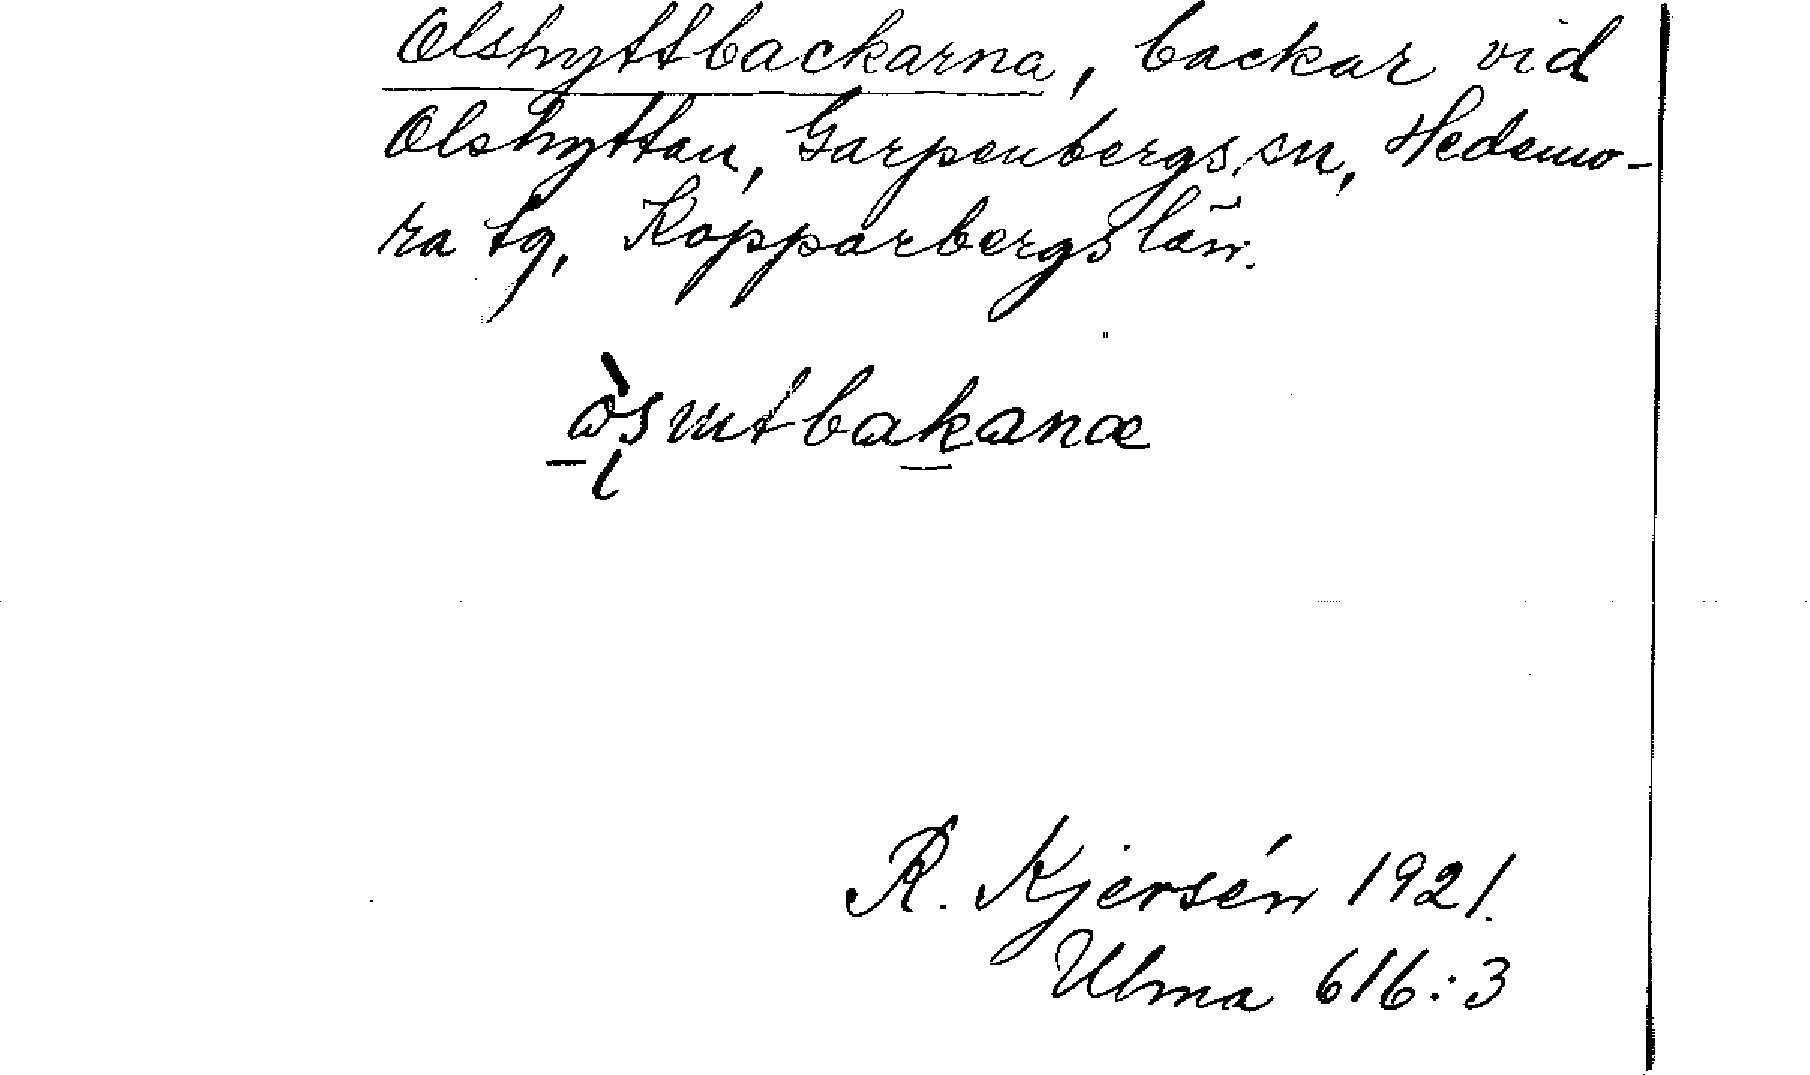 Olshyttbackarna, backar vid
Olshyttan, Garpenbergs sn, Hedemo-
ra tg, Kopparbergs län.
R. Kjersén 1921.
Ulma 616:3